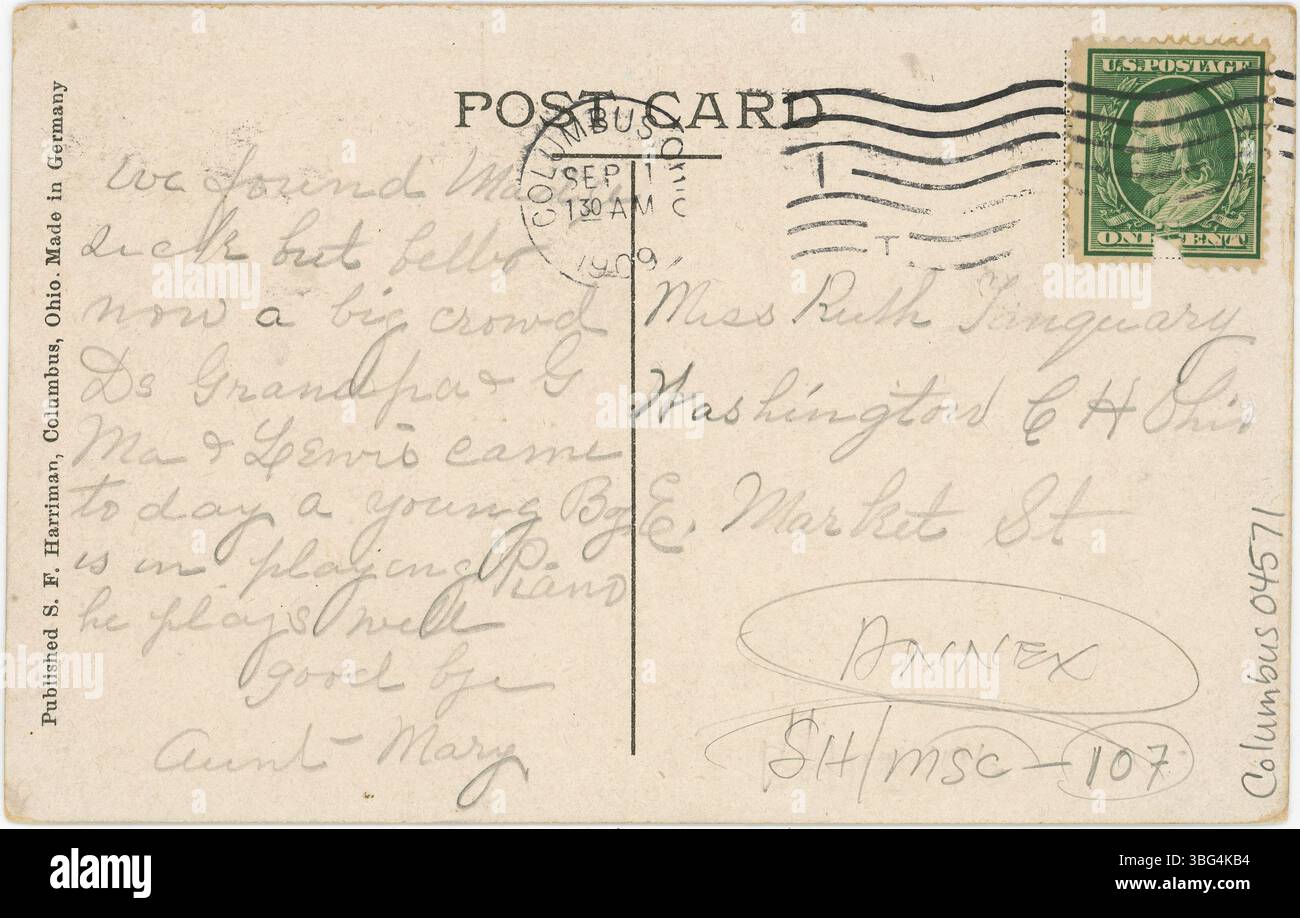 POST CARD
COLUMBUS OHIO
SEP 1
1 30 AM
1909
U.S. POSTAGE
ONE CENT
Published S. F. Harriman, Columbus, Ohio. Made in Germany
We found
sick but better
now a big crowd
Ds Grandpa & G
Ma & Lewis came
today a young Boy
is in playing Piano
he plays well
good bye
Aunt Mary
Miss Ruth Tanquary
Washington C H Ohio
E. Market St
ANNEX
SH/MSC-107
Columbus 04571
alamy
Image ID: 3BG4KB4
www.alamy.com